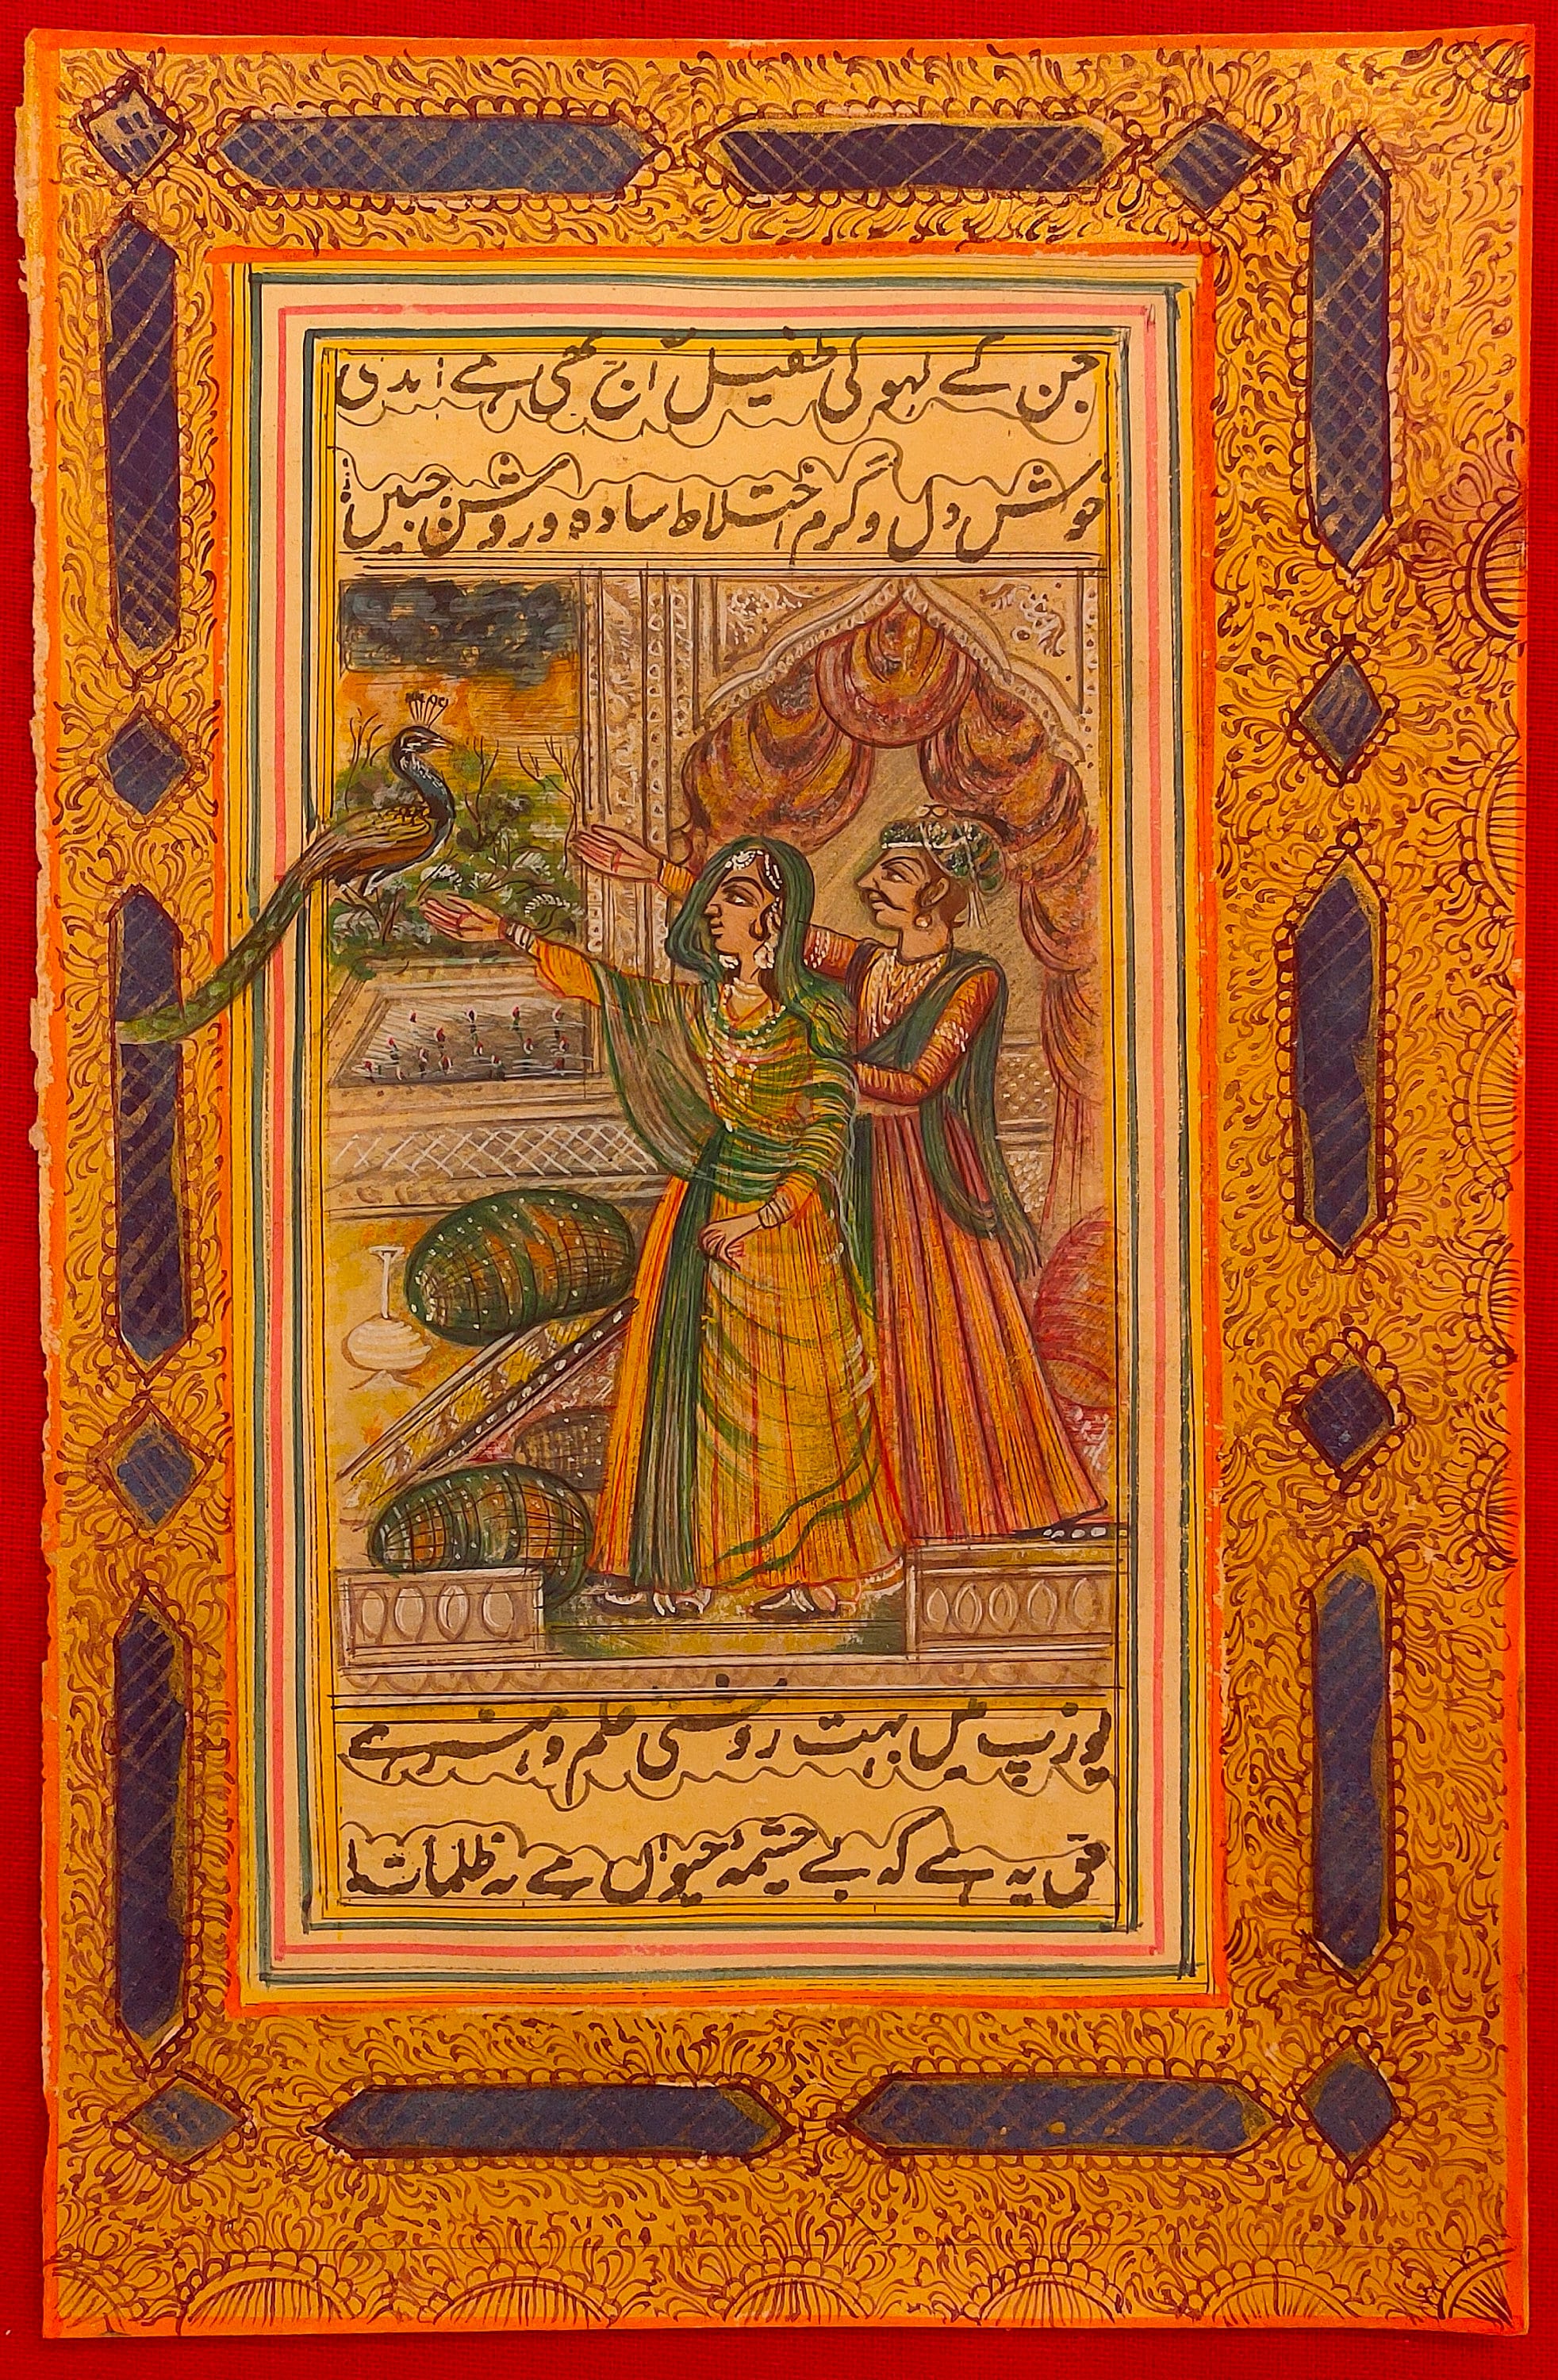 جن کے لہو کی طفیل آج بھی ہے
خوش دل و گرم اختلاط سادہ و روشن جبیں
یورپ میں بہت روشنی علم و ہنر ہے
حق یہ ہے کہ بے چشمۂ حیواں ہے یہ ظلمات